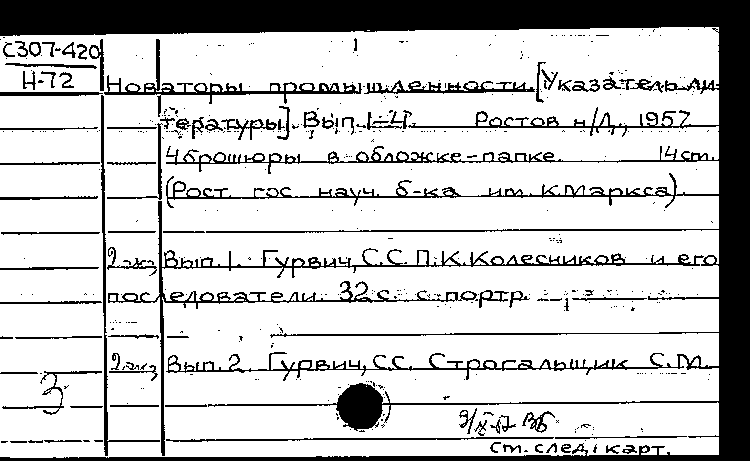 С307-420
1
Н-72
Новаторы промышленности. [Указатель ли-
тературы]. Вып. 1-4. Ростов н/Д., 1957
4 брошюры в обложке-папке. 14 cm.
(Рост. гос науч. б-ка им. К.Маркса).
2 экз Вып. 1. Гурвич, С.С. П.К. Колесников и его
последователи. 32 с. с портр.
2 экз Вып. 2. Гурвич, С.С. Строгальщик С.М.
3
ст. след. карт.